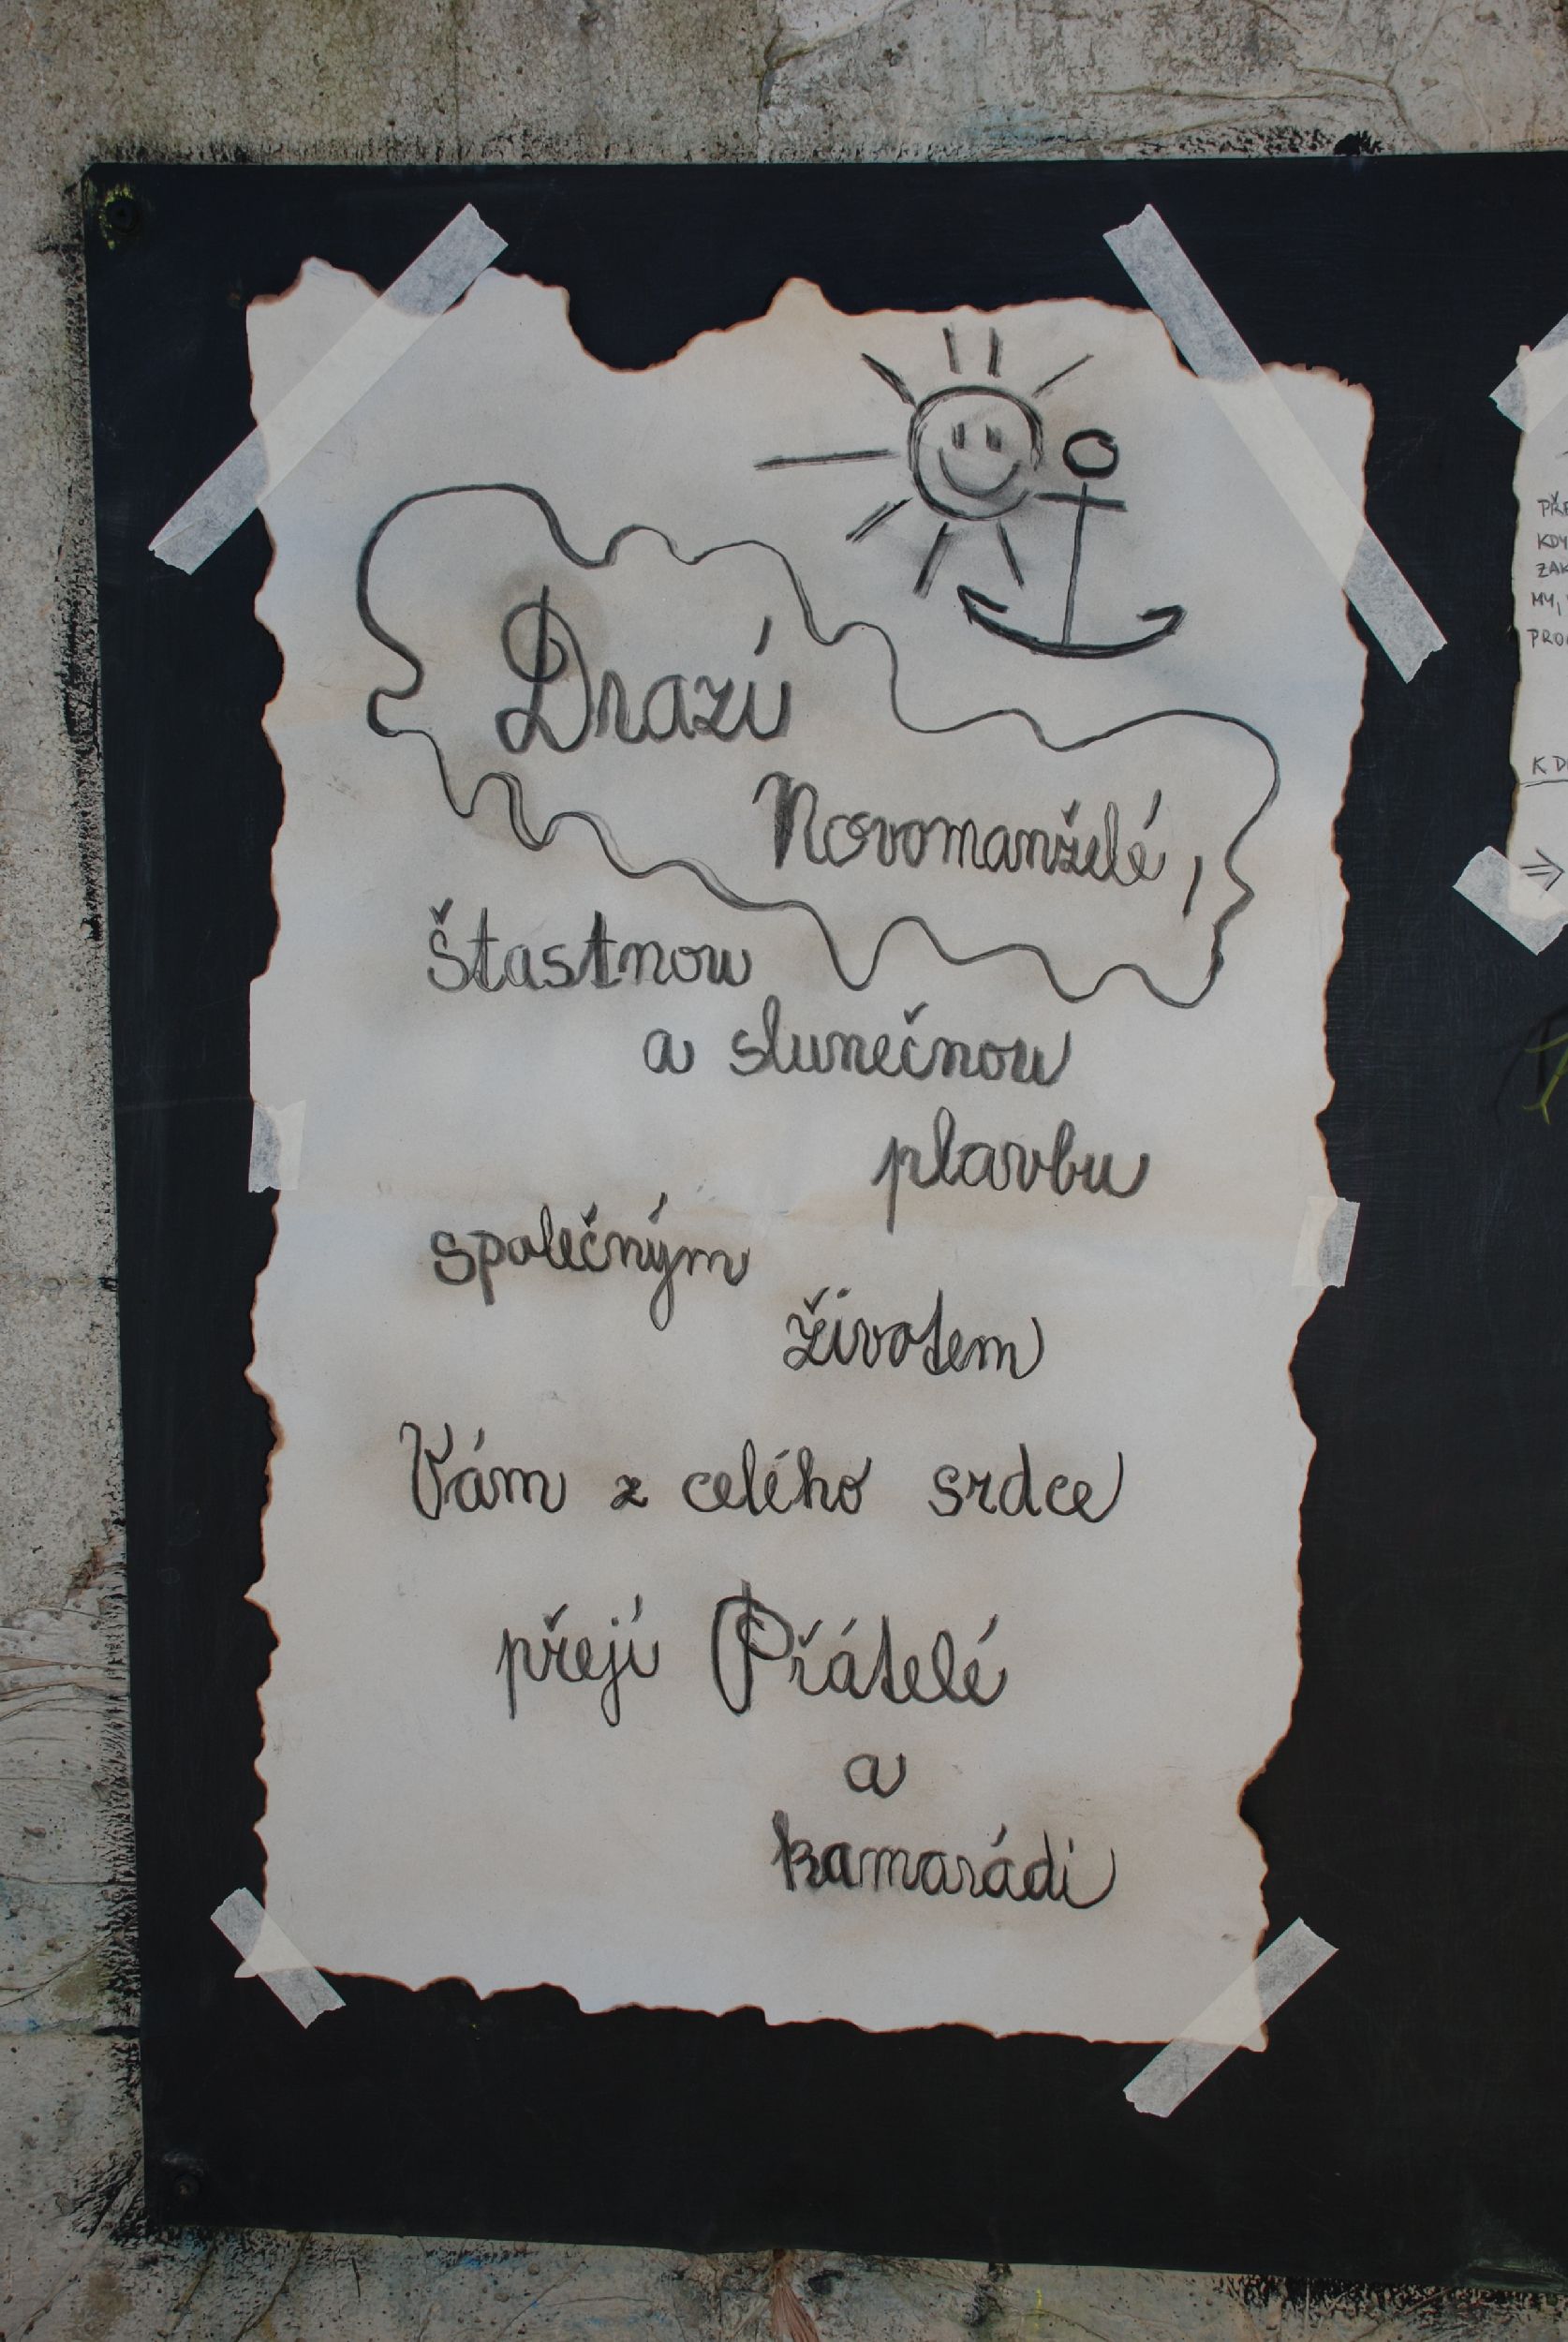 Drazí
Novomanželé,
štastnou
a slunečnou
plavbu
společným
životem
Vám z celého srdce
přejí Přátelé
a
kamarádi
KDY
MY,